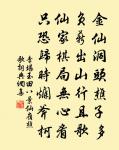 金仙洞頭樵子多
負薪出山行且歌
仙家棋局無心看
只恐歸時爛斧柯
玉田八景仙崖樵
歌詞典網